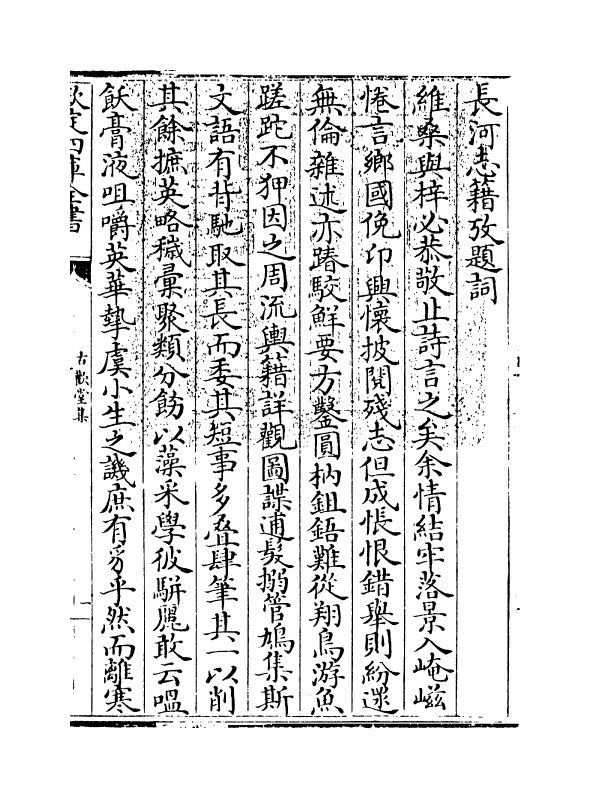 長河志籍攷題詞
維桑與梓必恭敬止詩言之矣余情結牢落景入崦嵫
惓言鄉國俛卬興懷披閱殘志但成悵恨錯舉則紛遝
無倫雜述亦踳駮鮮要方鑿圓枘鉏鋙難從翔鳥游魚
蹉跎不狎因之周流輿籍詳觀圖諜逋髮搦管鳩集斯
文語有背馳取其長而委其短事多叠肆筆其一以削
其餘摭英略穢彙聚類分餙以藻米學彼駢麗敢云嗢
飫膏液咀嚼英華摯虞小生之譏庶有豸乎然而離寒
欽定四庫全書
古歡堂集